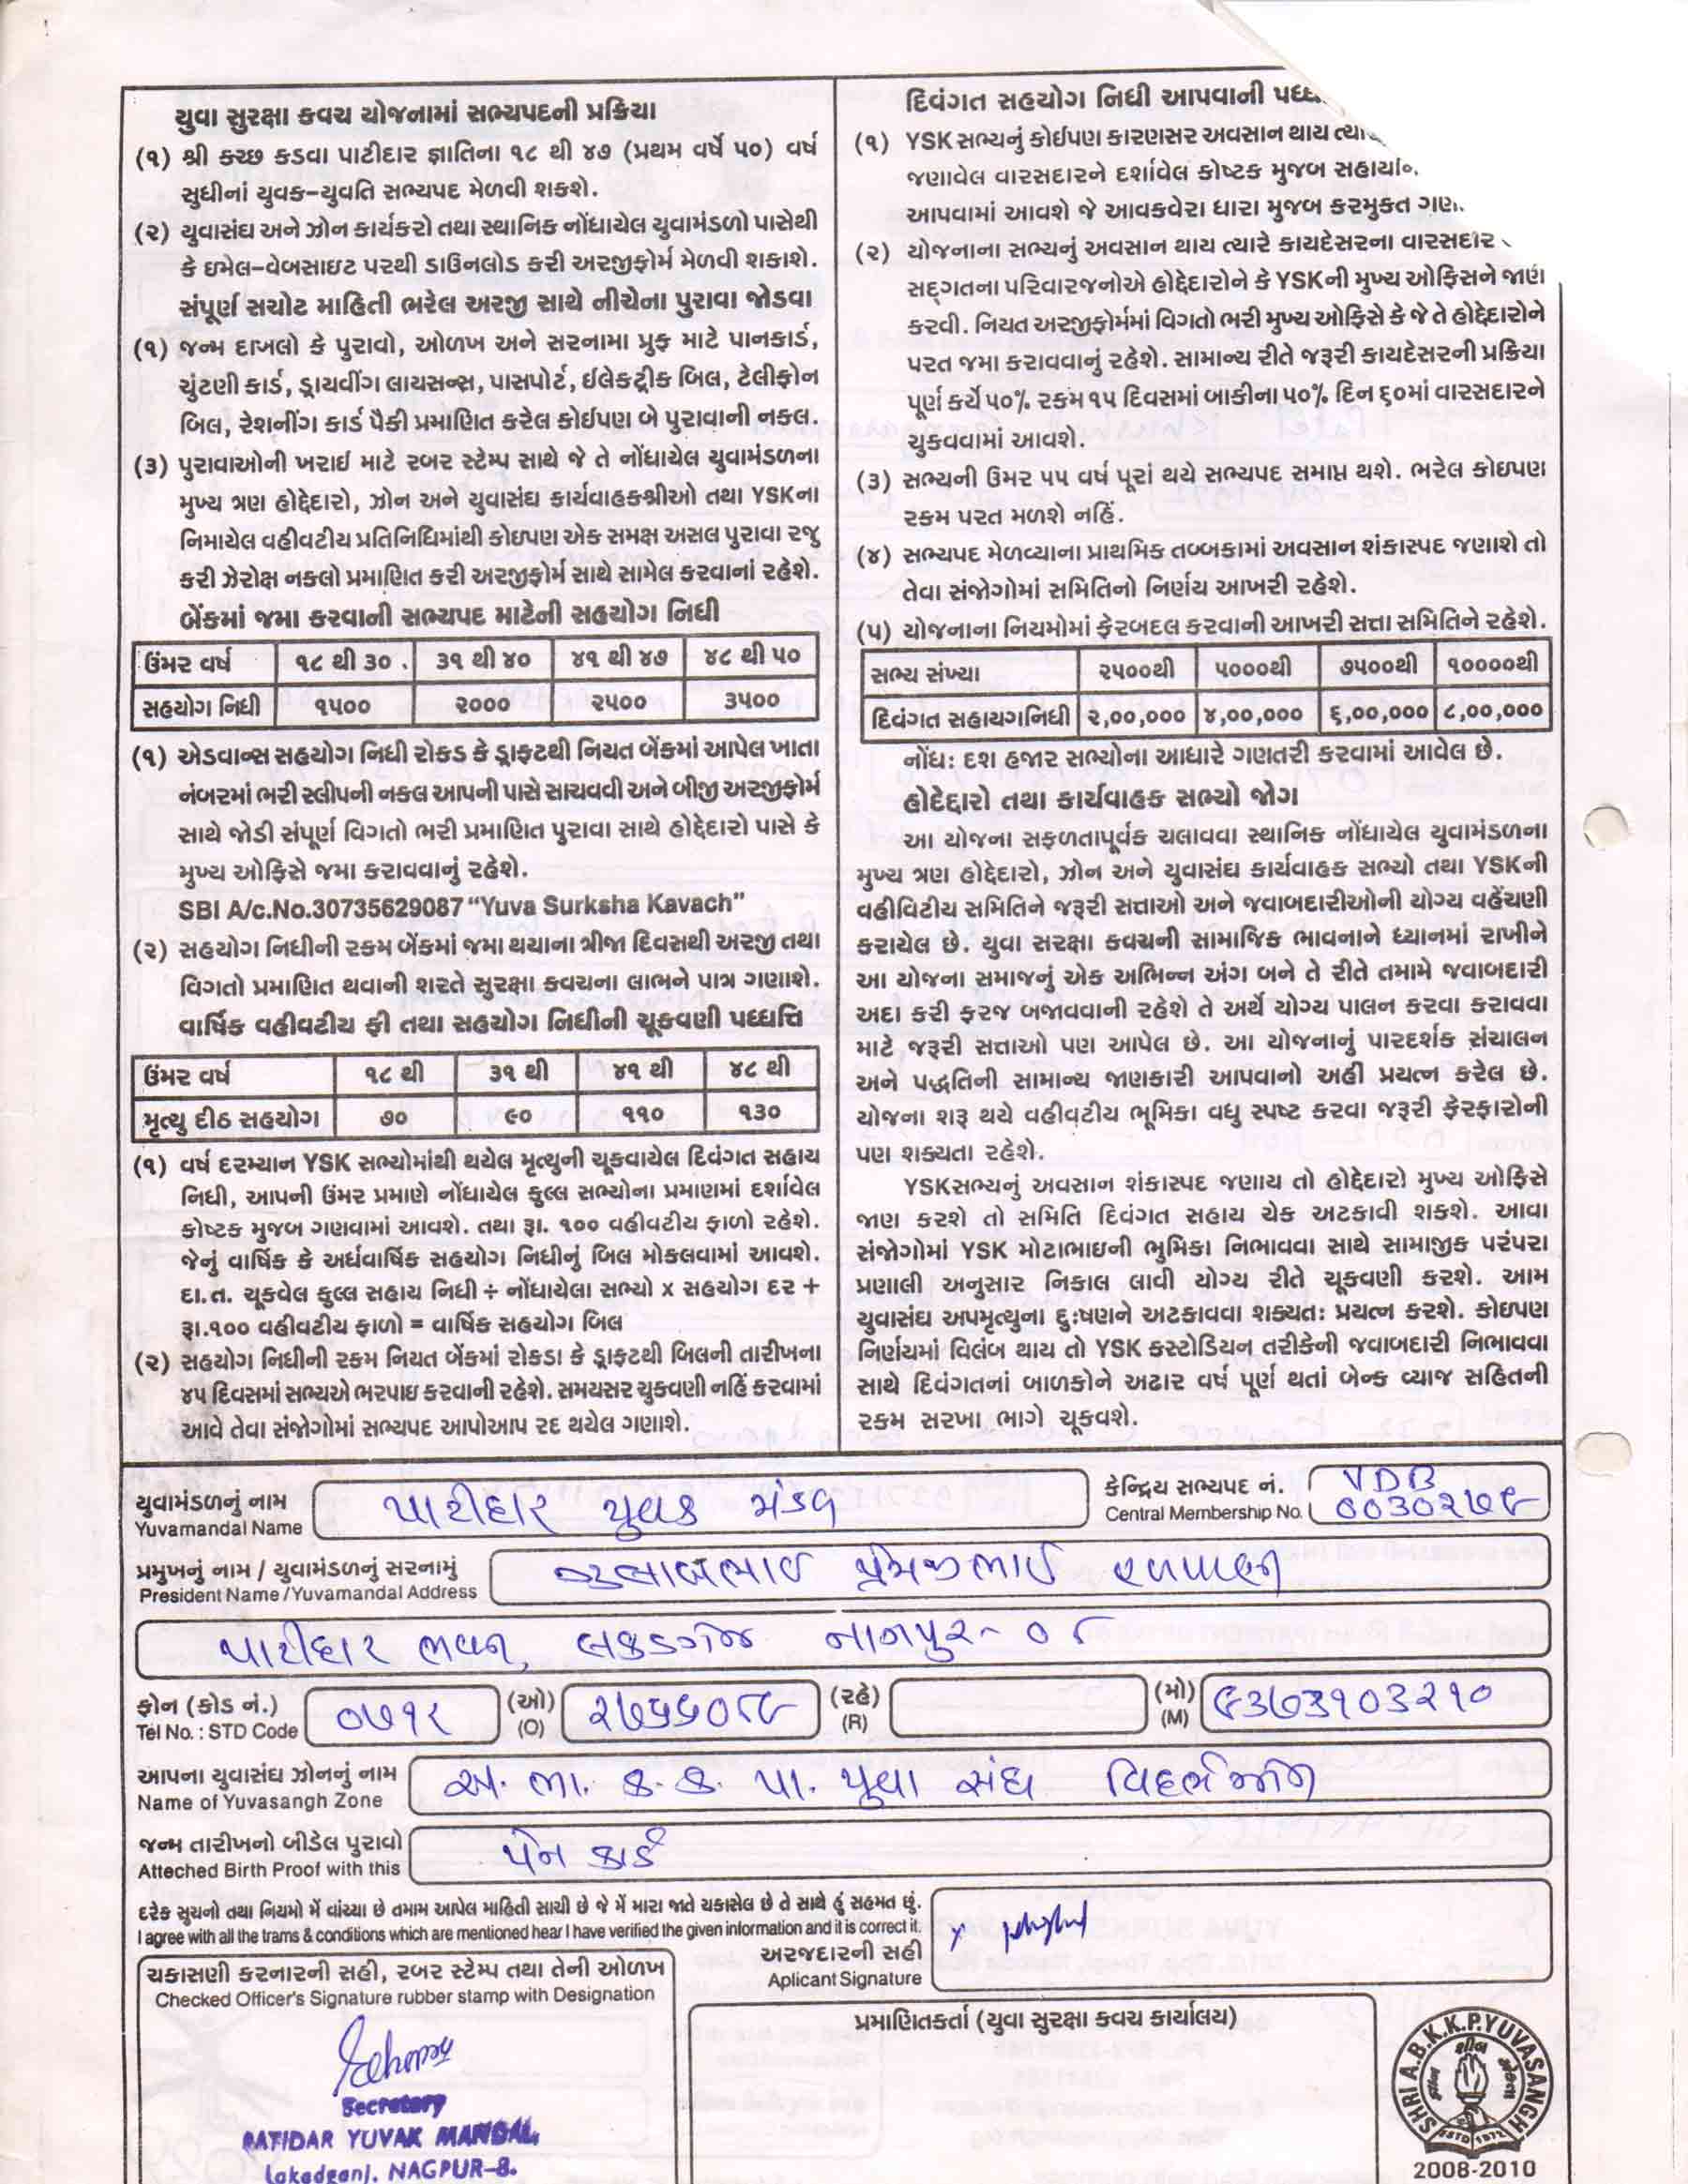 યુવા સુરક્ષા કવચ યોજનામાં સભ્યપદની પ્રક્રિયા
(૧) શ્રી કચ્છ કડવા પાટીદાર જ્ઞાતિના ૧૮ થી ૪૭ (પ્રથમ વર્ષે ૫૦) વર્ષ
સુધીનાં યુવક-યુવતિ સભ્યપદ મેળવી શકશે.
(૨) યુવાસંઘ અને ઝોન કાર્યકરો તથા સ્થાનિક નોંધાયેલ યુવામંડળો પાસેથી
કે ઇમેલ-વેબસાઇટ પરથી ડાઉનલોડ કરી અરજીફોર્મ મેળવી શકાશે.
સંપૂર્ણ સચોટ માહિતી ભરેલ અરજી સાથે નીચેના પુરાવા જોડવા
(૧) જન્મ દાખલો કે પુરાવો, ઓળખ અને સરનામા પ્રુફ માટે પાનકાર્ડ,
ચુંટણી કાર્ડ, ડ્રાયવીંગ લાયસન્સ, પાસપોર્ટ, ઈલેકટ્રીક બિલ, ટેલીફોન
બિલ, રેશનીંગ કાર્ડ પૈકી પ્રમાણિત કરેલ કોઈપણ બે પુરાવાની નકલ.
(૩) પુરાવાઓની ખરાઇ માટે રબર સ્ટેમ્પ સાથે જે તે નોંધાયેલ યુવામંડળના
મુખ્ય ત્રણ હોદ્દેદારો, ઝોન અને યુવાસંઘ કાર્યવાહકશ્રીઓ તથા YSKના
નિમાયેલ વહીવટીય પ્રતિનિધિમાંથી કોઇપણ એક સમક્ષ અસલ પુરાવા રજુ
કરી ઝેરોક્ષ નકલો પ્રમાણિત કરી અરજીફોર્મ સાથે સામેલ કરવાનાં રહેશે.
બેંકમાં જમા કરવાની સભ્યપદ માટેની સહયોગ નિધી
ઉંમર વર્ષ ૧૮ થી ૩૦ . ૩૧ થી ૪૦ ૪૧ થી ૪૭ ૪૮ થી ૫૦
સહયોગ નિધી ૧૫૦૦ ૨૦૦૦ ૨૫૦૦ ૩૫૦૦
(૧) એડવાન્સ સહયોગ નિધી રોકડ કે ડ્રાફટથી નિયત બેંકમાં આપેલ ખાતા
નંબરમાં ભરી સ્લીપની નકલ આપની પાસે સાચવવી અને બીજી અરજીફોર્મ
સાથે જોડી સંપૂર્ણ વિગતો ભરી પ્રમાણિત પુરાવા સાથે હોદ્દેદારો પાસે કે
મુખ્ય ઓફિસે જમા કરાવવાનું રહેશે.
SBI A/c.No.30735629087 "Yuva Surksha Kavach"
(૨) સહયોગ નિધીની રકમ બેંકમાં જમા થયાના ત્રીજા દિવસથી અરજી તથા
વિગતો પ્રમાણિત થવાની શરતે સુરક્ષા કવચના લાભને પાત્ર ગણાશે.
વાર્ષિક વહીવટીય ફી તથા સહયોગ નિધીની ચૂકવણી પધ્ધત્તિ
ઉંમર વર્ષ ૧૮ થી ૩૧ થી ૪૧ થી ૪૮ થી
મૃત્યુ દીઠ સહયોગ ૭૦ ૯૦ ૧૧૦ ૧૩૦
(૧) વર્ષ દરમ્યાન YSK સભ્યોમાંથી થયેલ મૃત્યુની ચૂકવાયેલ દિવંગત સહાય
નિધી, આપની ઉંમર પ્રમાણે નોંધાયેલ કુલ્લ સભ્યોના પ્રમાણમાં દર્શાવેલ
કોષ્ટક મુજબ ગણવામાં આવશે. તથા રૂા. ૧૦૦ વહીવટીય ફાળો રહેશે.
જેનું વાર્ષિક કે અર્ધવાર્ષિક સહયોગ નિધીનું બિલ મોકલવામાં આવશે.
દા.ત. ચૂકવેલ કુલ્લ સહાય નિધી ÷ નોંધાયેલા સભ્યો x સહયોગ દર +
રૂા.૧૦૦ વહીવટીય ફાળો = વાર્ષિક સહયોગ બિલ
(૨) સહયોગ નિધીની રકમ નિયત બેંકમાં રોકડા કે ડ્રાફટથી બિલની તારીખના
૪૫ દિવસમાં સભ્યએ ભરપાઇ કરવાની રહેશે. સમયસર ચુકવણી નહિં કરવામાં
આવે તેવા સંજોગોમાં સભ્યપદ આપોઆપ રદ થયેલ ગણાશે.
દિવંગત સહયોગ નિધી આપવાની
(૧) YSK સભ્યનું કોઈપણ કારણસર અવસાન થાય
જણાવેલ વારસદારને દર્શાવેલ કોષ્ટક મુજબ
આપવામાં આવશે જે આવકવેરા ધારા મુજબ કરમુક્ત
(૨) યોજનાના સભ્યનું અવસાન થાય ત્યારે કાયદેસરના વારસદાર
સદ્ગતના પરિવારજનોએ હોદ્દેદારોને કે YSKની મુખ્ય ઓફિસને જાણ
કરવી. નિયત અરજીફોર્મમાં વિગતો ભરી મુખ્ય ઓફિસે કે જે તે હોદ્દેદારોને
પરત જમા કરાવવાનું રહેશે. સામાન્ય રીતે જરૂરી કાયદેસરની પ્રક્રિયા
પૂર્ણ કર્યે ૫૦% રકમ ૧૫ દિવસમાં બાકીના ૫૦% દિન ૬૦માં વારસદારને
ચુકવવામાં આવશે.
(૩) સભ્યની ઉમર ૫૫ વર્ષ પૂરાં થયે સભ્યપદ સમાપ્ત થશે. ભરેલ કોઇપણ
રકમ પરત મળશે નહિં.
(૪) સભ્યપદ મેળવ્યાના પ્રાથમિક તબ્બકામાં અવસાન શંકાસ્પદ જણાશે તો
તેવા સંજોગોમાં સમિતિનો નિર્ણય આખરી રહેશે.
(૫) યોજનાના નિયમોમાં ફેરબદલ કરવાની આખરી સત્તા સમિતિને રહેશે.
સભ્ય સંખ્યા ૨૫૦૦થી ૫૦૦૦થી ૭૫૦૦થી ૧૦૦૦૦થી
દિવંગત સહાયગનિધી ૨,૦૦,૦૦૦ ૪,૦૦,૦૦૦ ૬,૦૦,૦૦૦ ૮,૦૦,૦૦૦
નોંધ: દશ હજાર સભ્યોના આધારે ગણતરી કરવામાં આવેલ છે.
હોદેદ્દારો તથા કાર્યવાહક સભ્યો જોગ
આ યોજના સફળતાપૂર્વક ચલાવવા સ્થાનિક નોંધાયેલ યુવામંડળના
મુખ્ય ત્રણ હોદ્દેદારો, ઝોન અને યુવાસંઘ કાર્યવાહક સભ્યો તથા YSKની
વહીવિટીય સમિતિને જરૂરી સત્તાઓ અને જવાબદારીઓની યોગ્ય વહેંચણી
કરાયેલ છે. યુવા સરક્ષા કવચની સામાજિક ભાવનાને ધ્યાનમાં રાખીને
આ યોજના સમાજનું એક અભિન્ન અંગ બને તે રીતે તમામે જવાબદારી
અદા કરી ફરજ બજાવવાની રહેશે તે અર્થે યોગ્ય પાલન કરવા કરાવવા
માટે જરૂરી સત્તાઓ પણ આપેલ છે. આ યોજનાનું પારદર્શક સંચાલન
અને પદ્ધતિની સામાન્ય જાણકારી આપવાનો અહી પ્રયત્ન કરેલ છે.
યોજના શરૂ થયે વહીવટીય ભૂમિકા વધુ સ્પષ્ટ કરવા જરૂરી ફેરફારોની
પણ શક્યતા રહેશે.
YSKસભ્યનું અવસાન શંકાસ્પદ જણાય તો હોદ્દેદારો મુખ્ય ઓફિસે
જાણ કરશે તો સમિતિ દિવંગત સહાય ચેક અટકાવી શકશે. આવા
સંજોગોમાં YSK મોટાભાઇની ભુમિકા નિભાવવા સાથે સામાજીક પરંપરા
પ્રણાલી અનુસાર નિકાલ લાવી યોગ્ય રીતે ચૂકવણી કરશે. આમ
યુવાસંઘ અપમૃત્યુના દુઃષણને અટકાવવા શક્યતઃ પ્રયત્ન કરશે. કોઇપણ
નિર્ણયમાં વિલંબ થાય તો YSK કસ્ટોડિયન તરીકેની જવાબદારી નિભાવવા
સાથે દિવંગતનાં બાળકોને અઢાર વર્ષ પૂર્ણ થતાં બેન્ક વ્યાજ સહિતની
રકમ સરખા ભાગે ચૂકવશે.
યુવામંડળનું નામ પાટીદાર યુવક મંડળ કેન્દ્રિય સભ્યપદ નં. VDB
Yuvamandal Name Central Membership No. 0030૨૭૯
પ્રમુખનું નામ / યુવામંડળનું સરનામું ગુલાબભાઈ પ્રેમજીભાઈ
President Name /Yuvamandal Address
પાટીદાર ભવન, લકડગંજ નાગપુર-૦૮
ફોન (કોડ નં.) ૦૭૧૨ (ઓ) ૨૭૬૬૦૮૯ (રહે) (મો) ૯૩૭૩૧૦૩૨૧૦
Tel No. : STD Code (O) (R) (M)
આપના યુવાસંઘ ઝોનનું નામ અ. ભા. ક. ક. પા. યુવા સંઘ વિદર્ભ ઝોન
Name of Yuvasangh Zone
જન્મ તારીખનો બીડેલ પુરાવો પેન કાર્ડ
Atteched Birth Proof with this
દરેક સુચનો તથા નિયમો મેં વાંચ્યા છે તમામ આપેલ માહિતી સાચી છે જે મેં મારા જાતે ચકાસેલ છે તે સાથે હું સહમત છું.
I agree with all the trams & conditions which are mentioned hear I have verified the given information and it is correct it.
અરજદારની સહી
Aplicant Signature
ચકાસણી કરનારની સહી, રબર સ્ટેમ્પ તથા તેની ઓળખ
Checked Officer's Signature rubber stamp with Designation
Secretary
PATIDAR YUVAK MANDAL
Lakadganj, NAGPUR-8.
પ્રમાણિતકર્તા (યુવા સુરક્ષા કવચ કાર્યાલય)
SHRI A.B.K.K.P. YUVASANGH
ESTD 1972
2008-2010